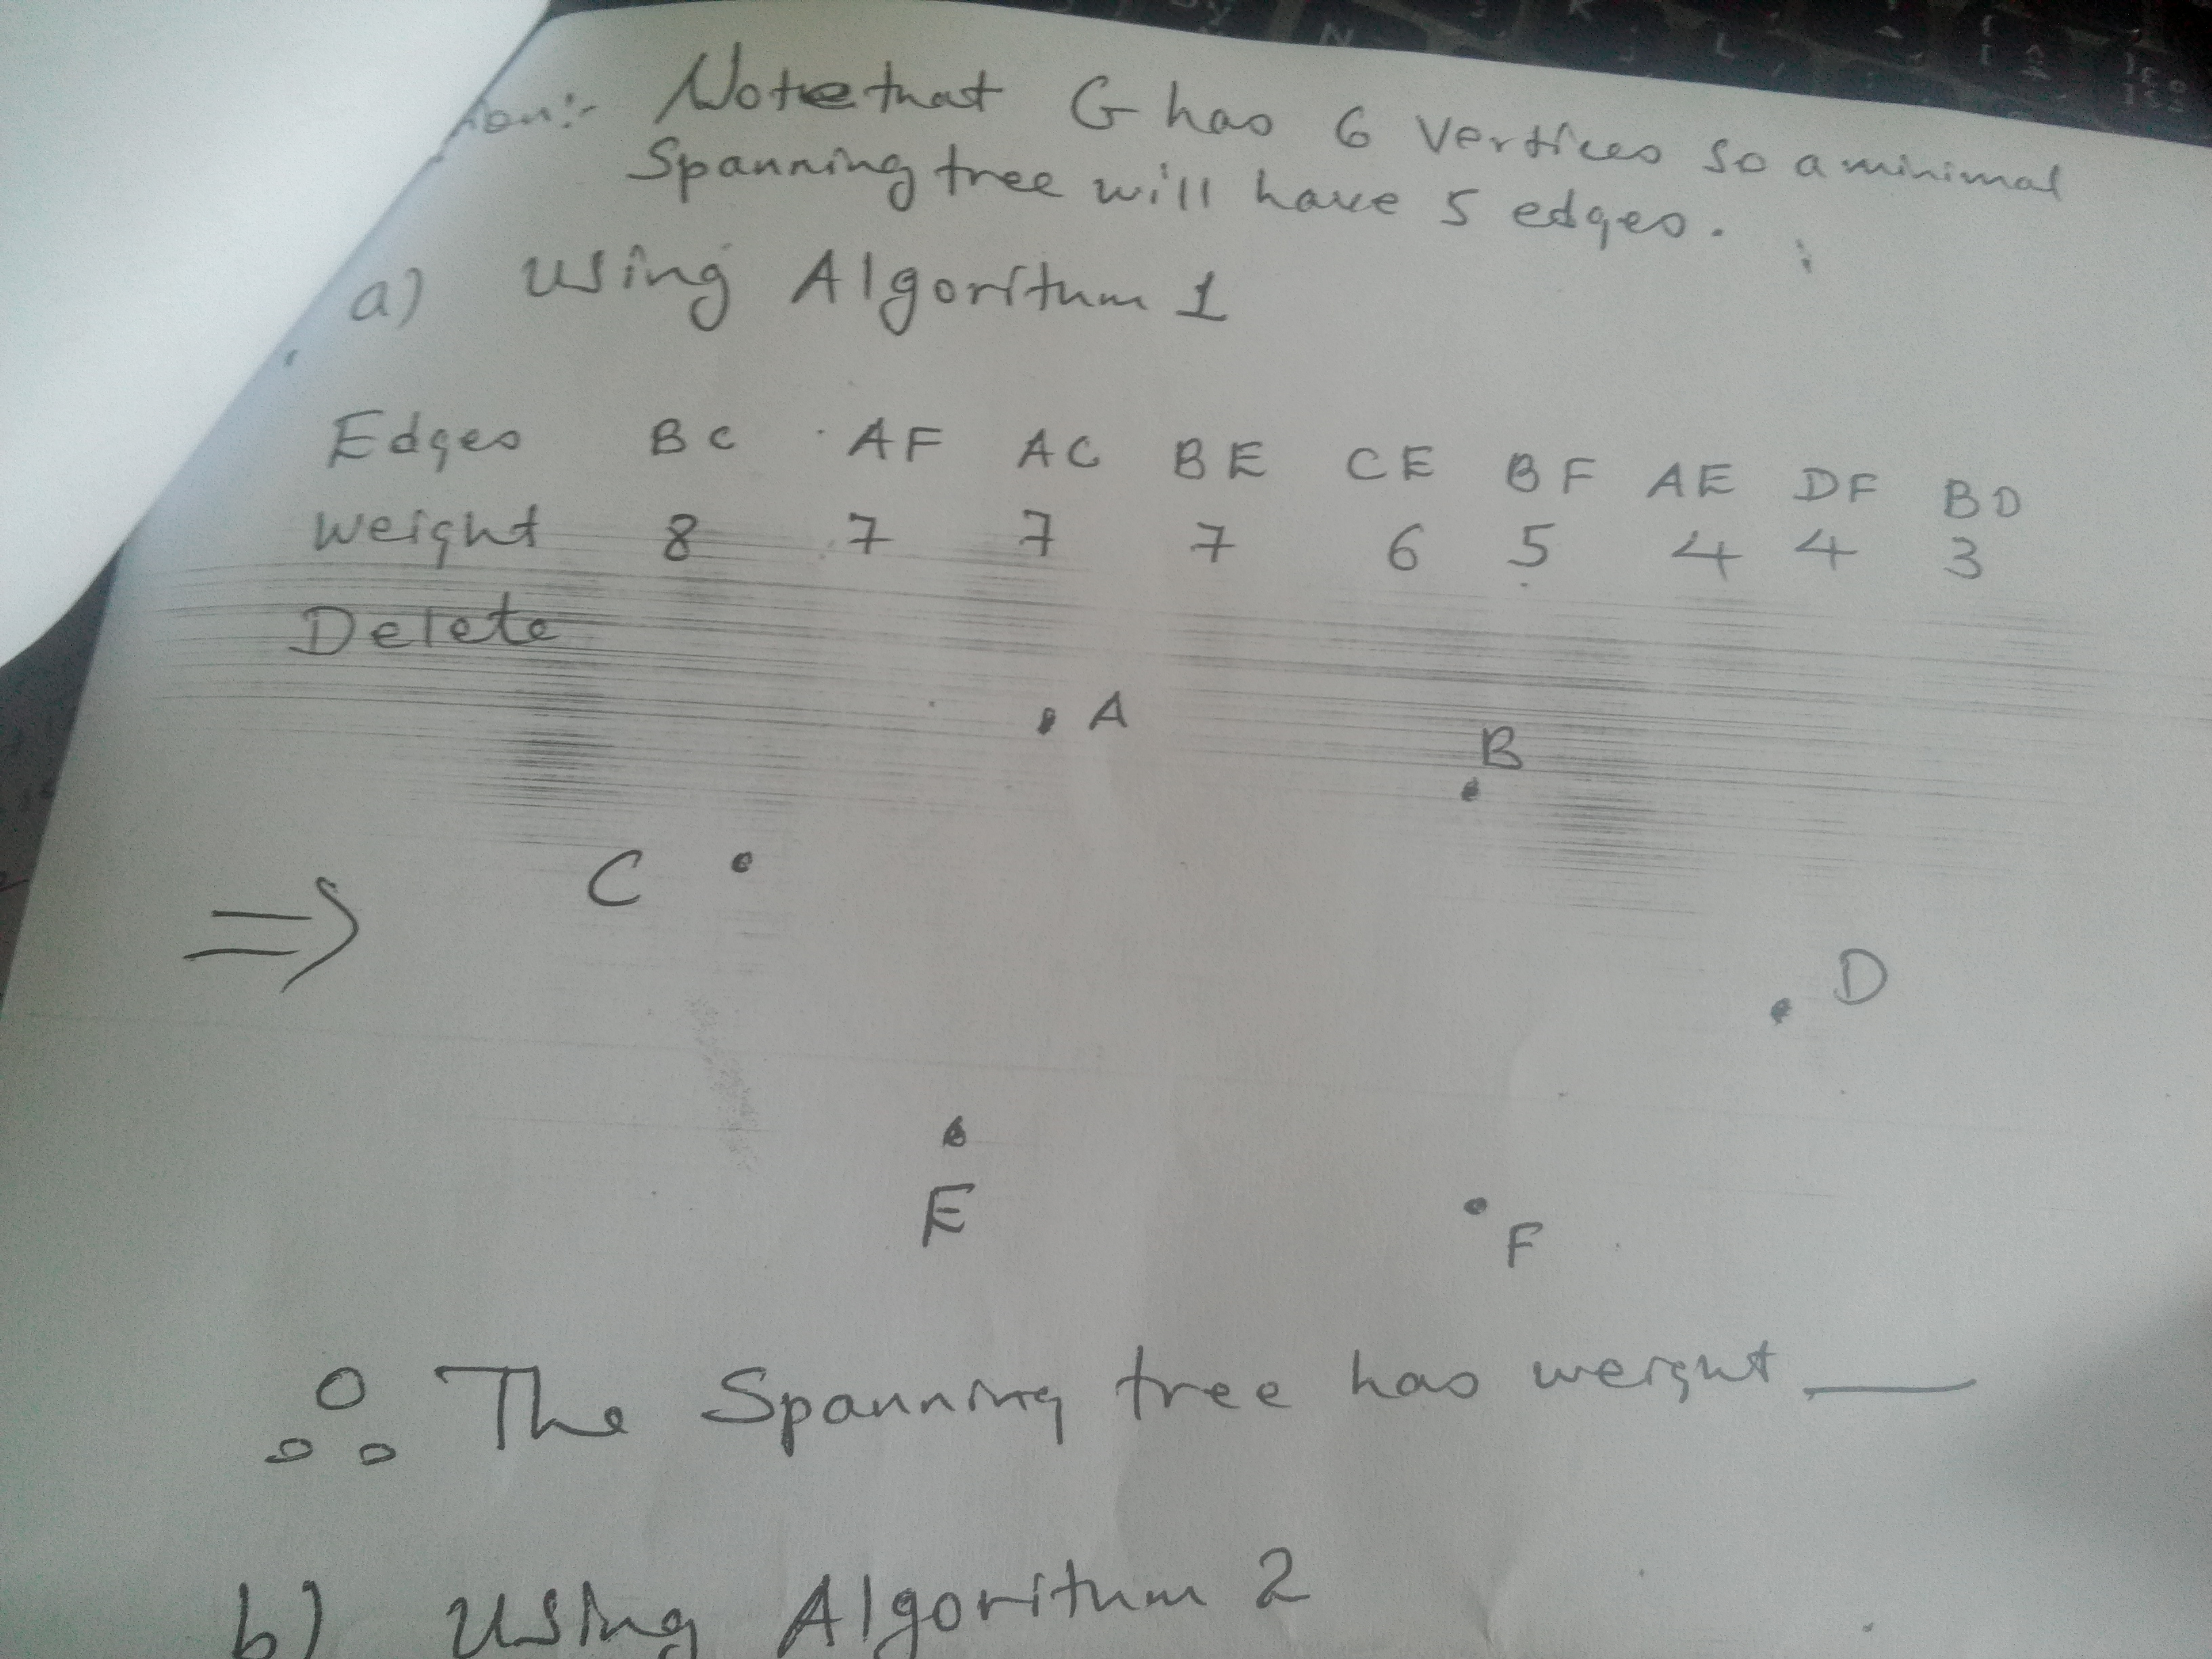 Note that G has 6 vertices so a minimal
Spanning tree will have 5 edges.
a) Using Algoritum 1
Edges BC AF AC BE CE BF AE DF BD
Weight 8 7 7 7 6 5 4 4 3
Delete
A
B
C
⇒
D
E
F
∴ The Spanning tree has weight ___
b) Using Algoritum 2